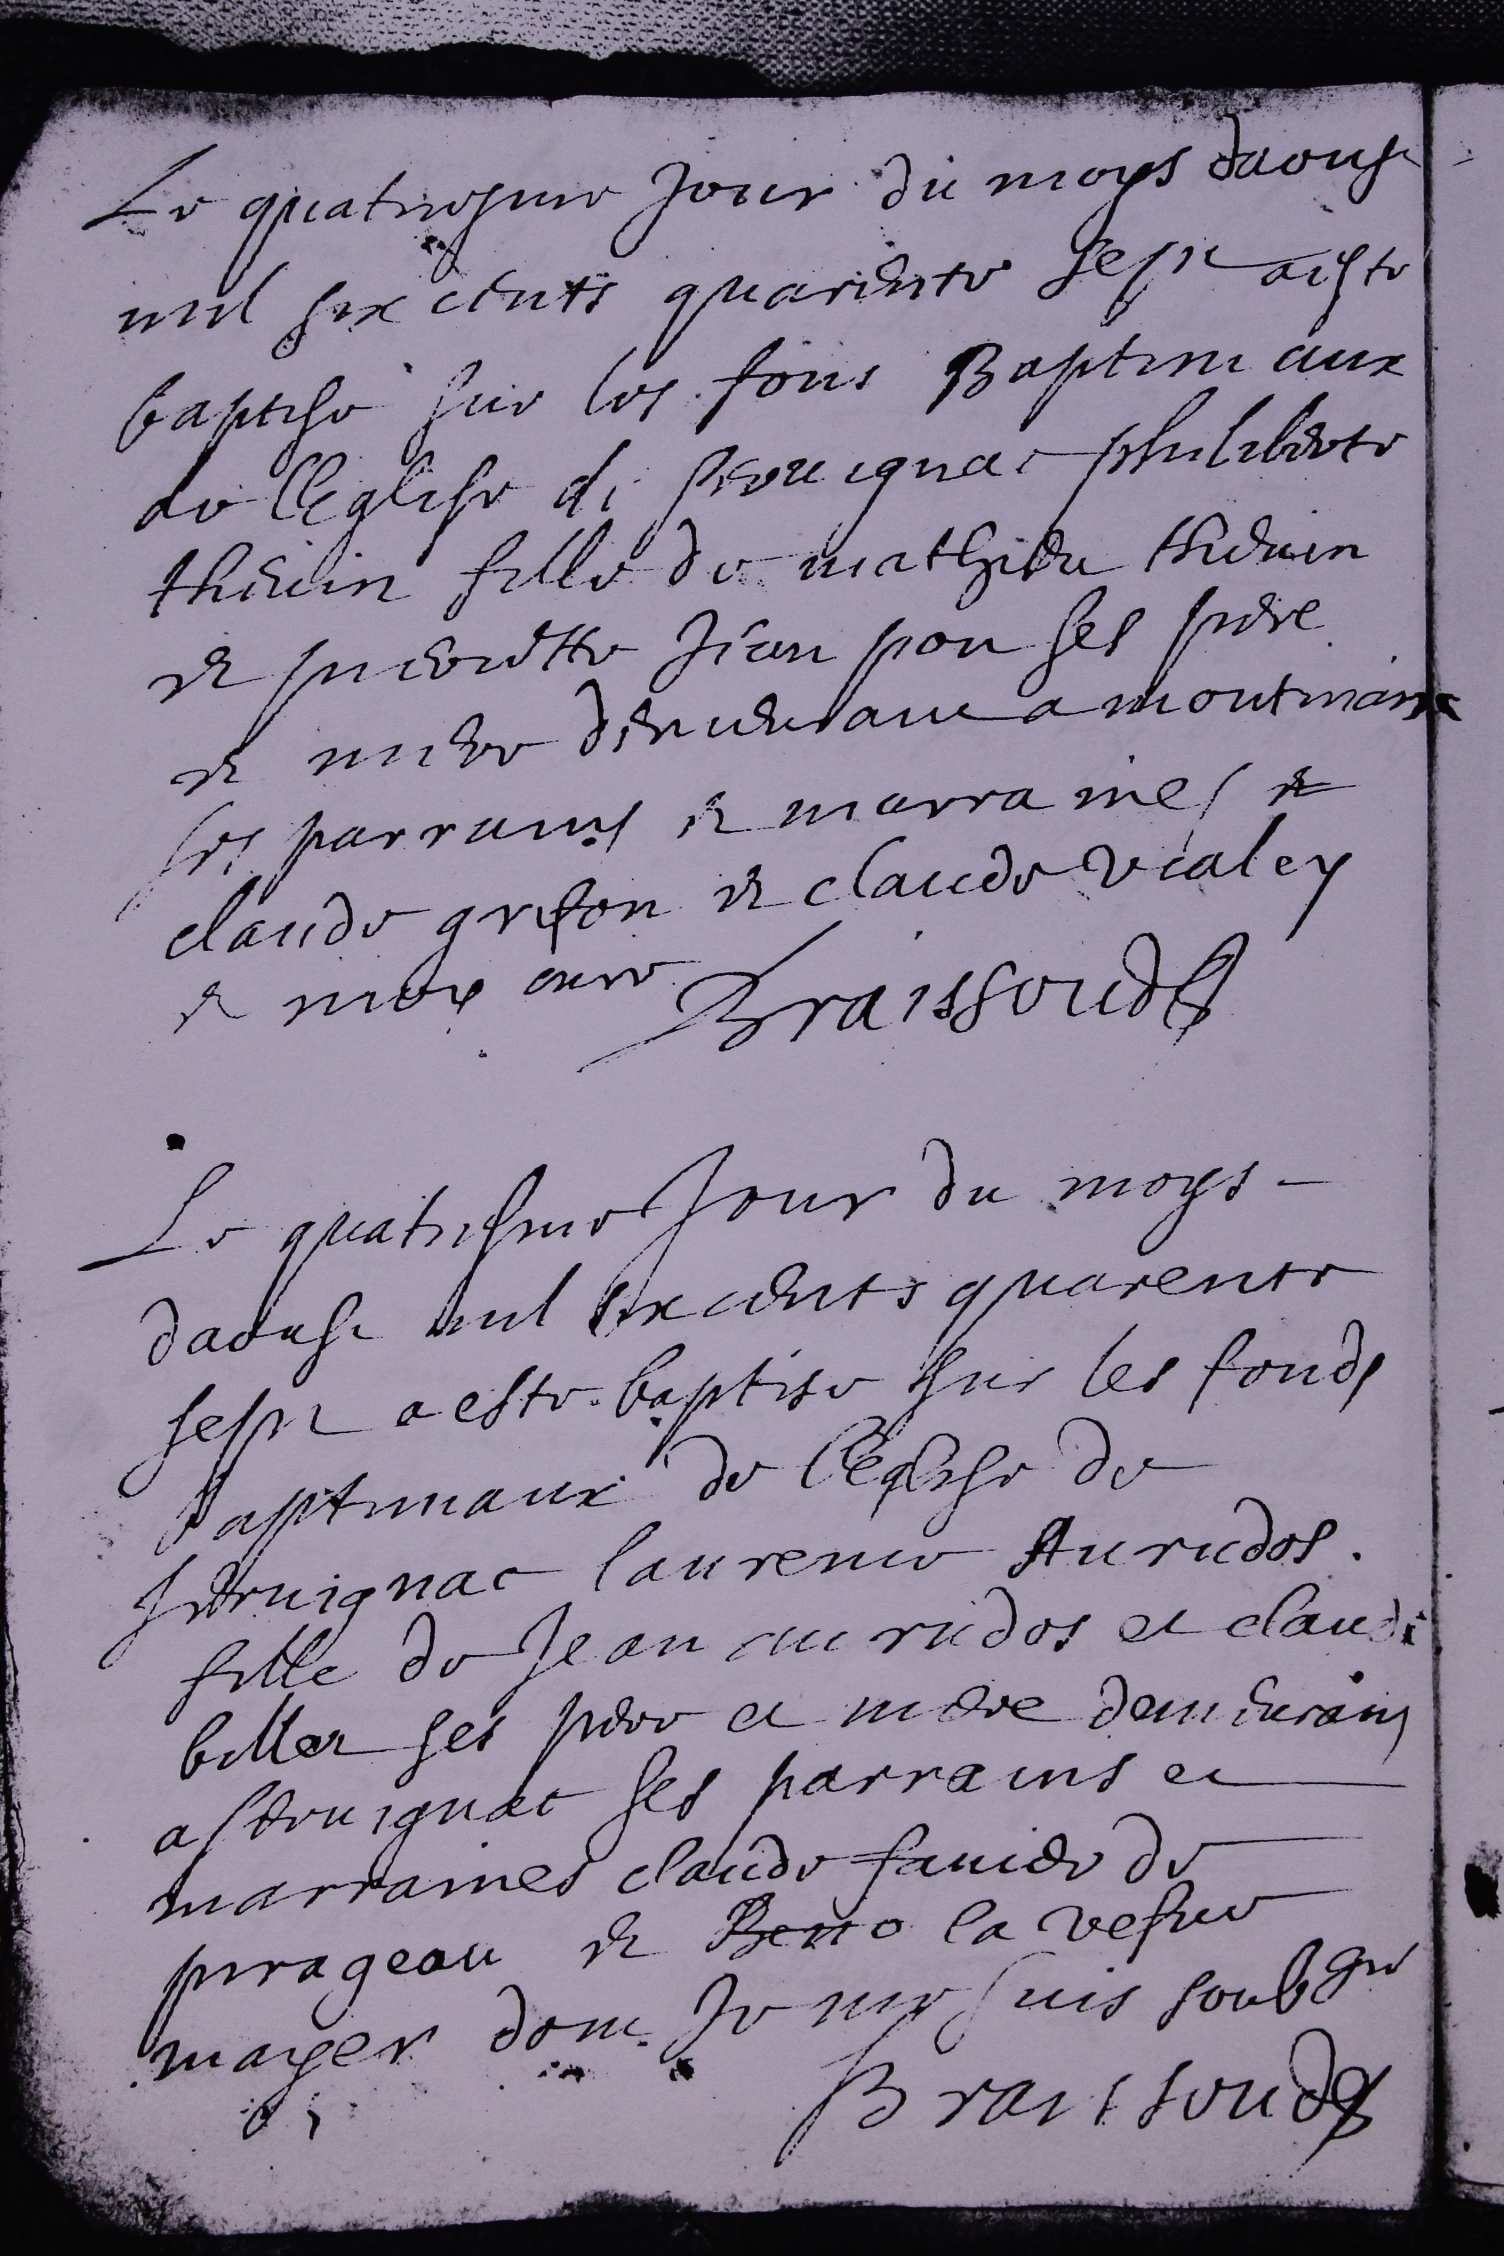 Le quatriesme Jour du moys daoust
mil six cents quarente sept a esté
baptisé sur les fons Baptimaux
de l'Eglise de servignac philiberte
thevin fille de mathieu thevin
et pierrette Jeanpou ses pere
et mere demeurant a montmain
ses parrains et marraines
claude grison et claude vialey
et moy curé Braissoud
Le quatriesme Jour du moys
daoust mil six cents quarente
sept a esté baptise sur les fonds
baptimaux de l'eglise de
servignac laurence
fille de Jean et claude
billet ses pere et mere demeurans
a servignac ses parrains et
marraines claude favier de
prageau et la vefve
mayer dont Je me suis soubsne
Braissoud